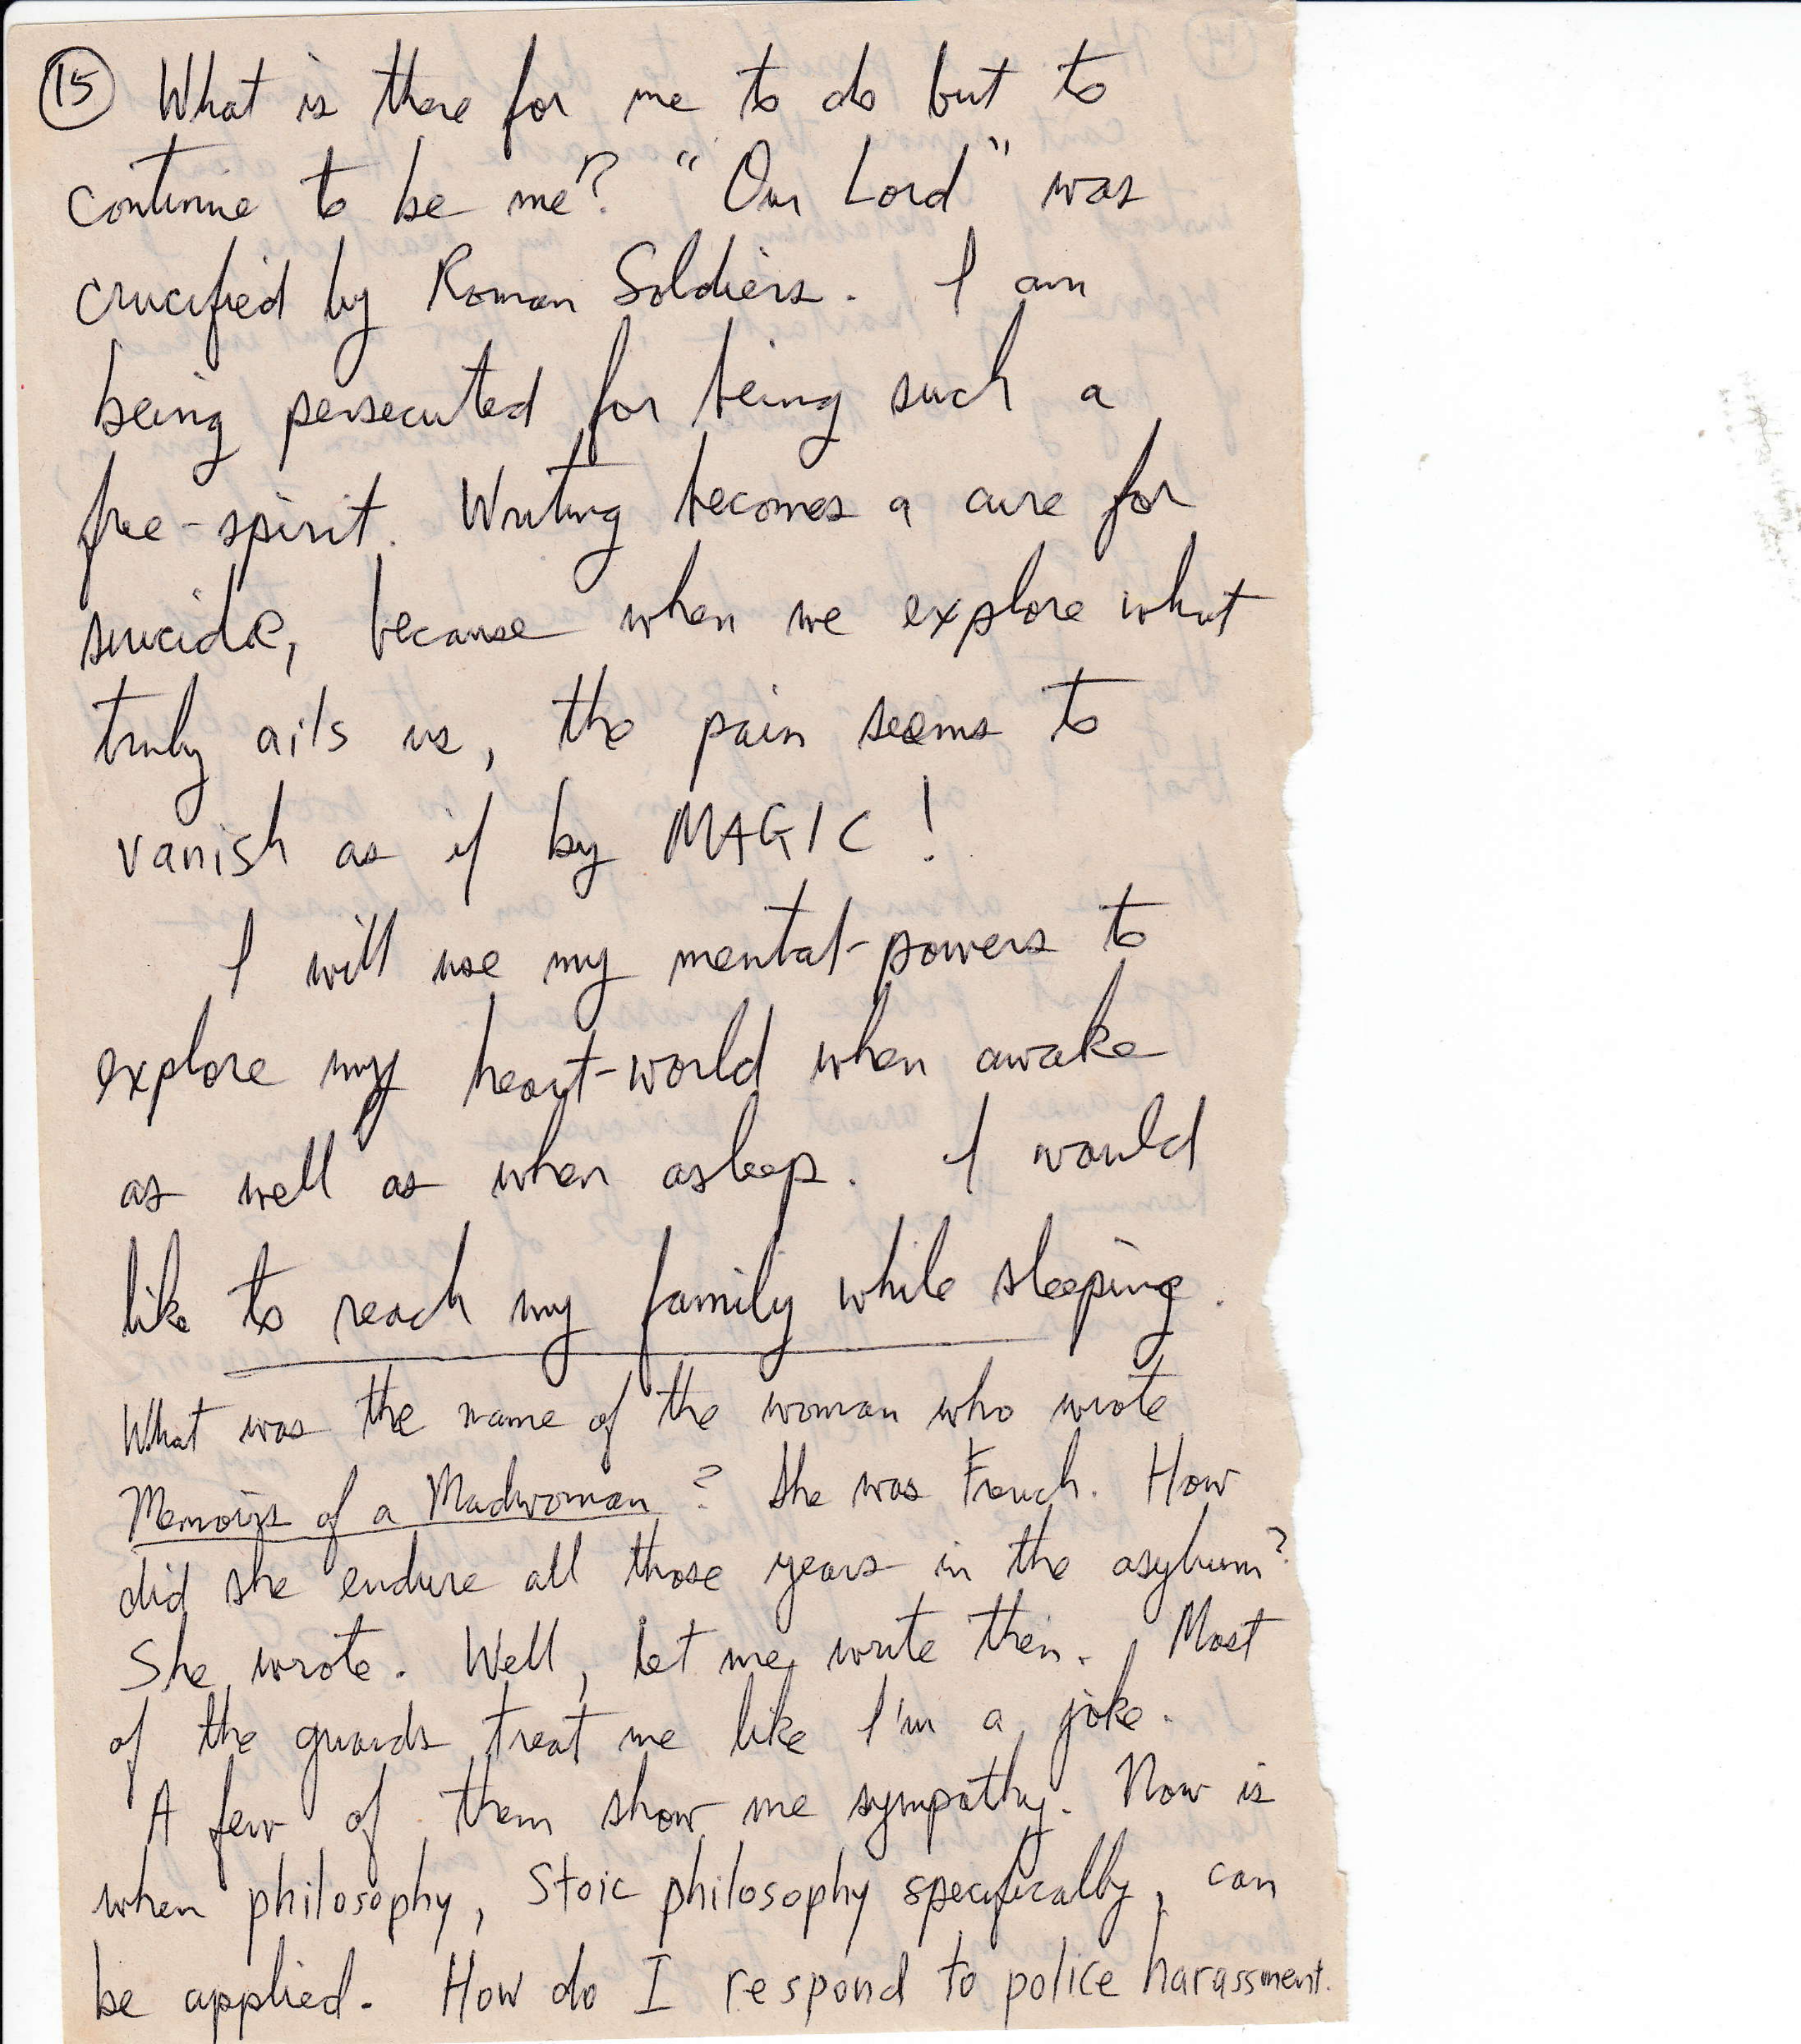 15 What is there for me to do but to
continue to be me? "Our Lord" was
crucified by Roman Soldiers. I am
being persecuted for being such a
free-spirit. Writing becomes a cure for
suicide, because when we explore what
truly ails us, the pain seems to
vanish as if by MAGIC!
I will use my mental-powers to
explore my heart-world when awake
as well as when asleep. I would
like to reach my family while sleeping.
What was the name of the woman who wrote
Memoirs of a Madwoman? She was French. How
did she endure all those years in the asylum?
She wrote. Well, let me write then. Most
of the guards treat me like I'm a joke.
A few of them show me sympathy. Now is
when philosophy, Stoic philosophy specifically, can
be applied. How do I respond to police harassment.